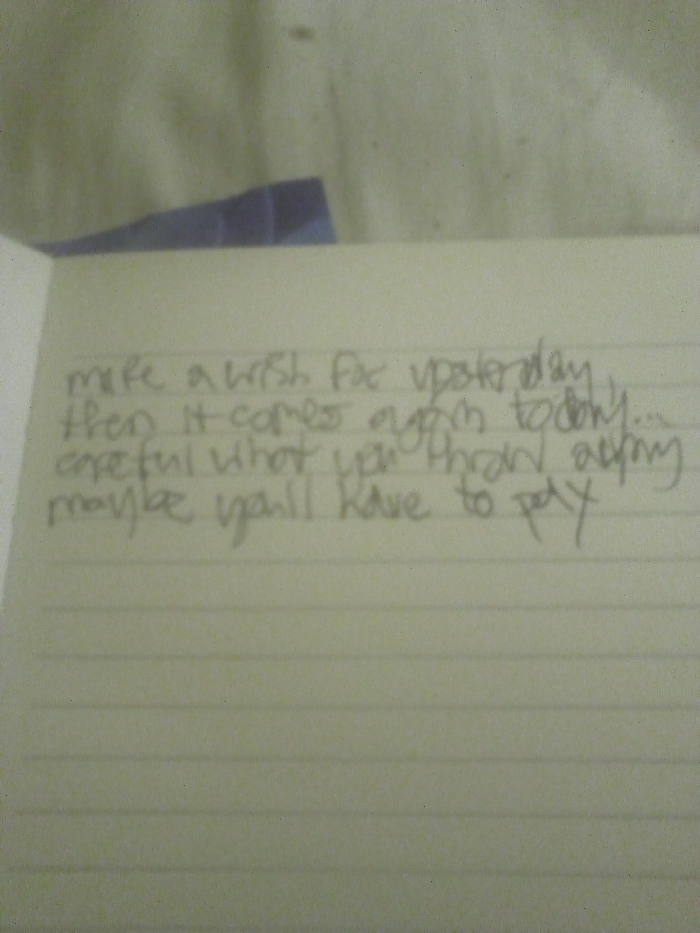 make a wish for yesterday,
then it comes again today...
careful what you throw away
maybe you'll have to pay